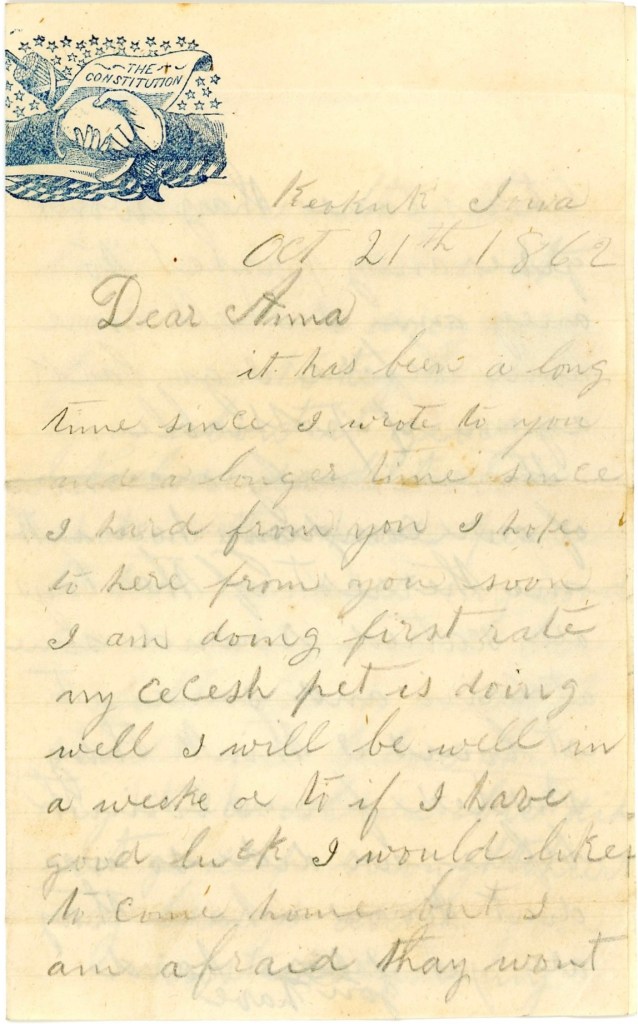 THE
CONSTITUTION
Keokuk Iowa
Oct 21th 1862
Dear Anna
it has been a long
time since I wrote to you
and a longer time since
I hard from you I hope
to here from you soon
I am doing first rate
my cecesh pet is doing
well I will be well in
a weeke or to if I have
good luck I would like
to come home but I
am afraid thay wont